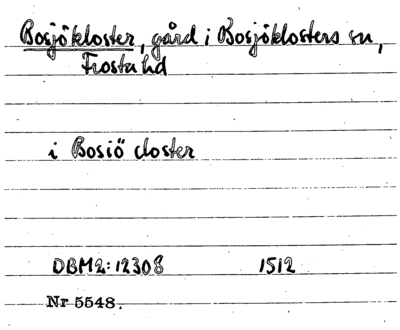 Bosjökloster, gård i Bosjöklosters sn,
Frosta hd
i Bosiö closter
DBM2:12308 1512
Nr 5548.